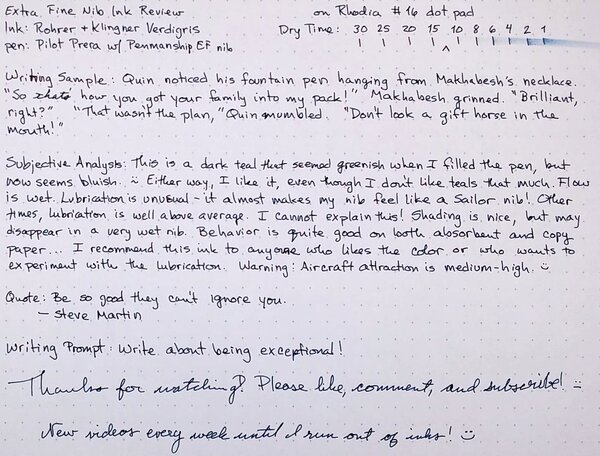 Extra Fine Nib Ink Review on Rhodia #16 dot pad
Ink: Rohrer + Klingner Verdigris Dry Time: 30 25 20 15 10 8 6 4 2 1
pen: Pilot Prera w/ Penmanship EF nib
Writing Sample: Quin noticed his fountain pen hanging from Makhabesh's necklace.
"So thats how you got your family into my pack!" Makhabesh grinned. "Brilliant,
right?" "That wasn't the plan," Quin mumbled. "Don't look a gift horse in the
mouth!"
Subjective Analysis: This is a dark teal that seemed greenish when I filled the pen, but
now seems bluish. :) Either way, I like it, even though I don't like teals that much. Flow
is wet. Lubrication is unusual - it almost makes my nib feel like a Sailor nib! Other
times, lubrication is well above average. I cannot explain this! Shading is nice, but may
disappear in a very wet nib. Behavior is quite good on both absorbent and copy
paper... I recommend this ink to anyone who likes the color or who wants to
experiment with the lubrication. Warning: Aircraft attraction is medium-high. :)
Quote: Be so good they can't ignore you.
- Steve Martin
Writing Prompt: Write about being exceptional!
Thanks for watching! Please like, comment, and subscribe! :)
New videos every week until I run out of inks! :)